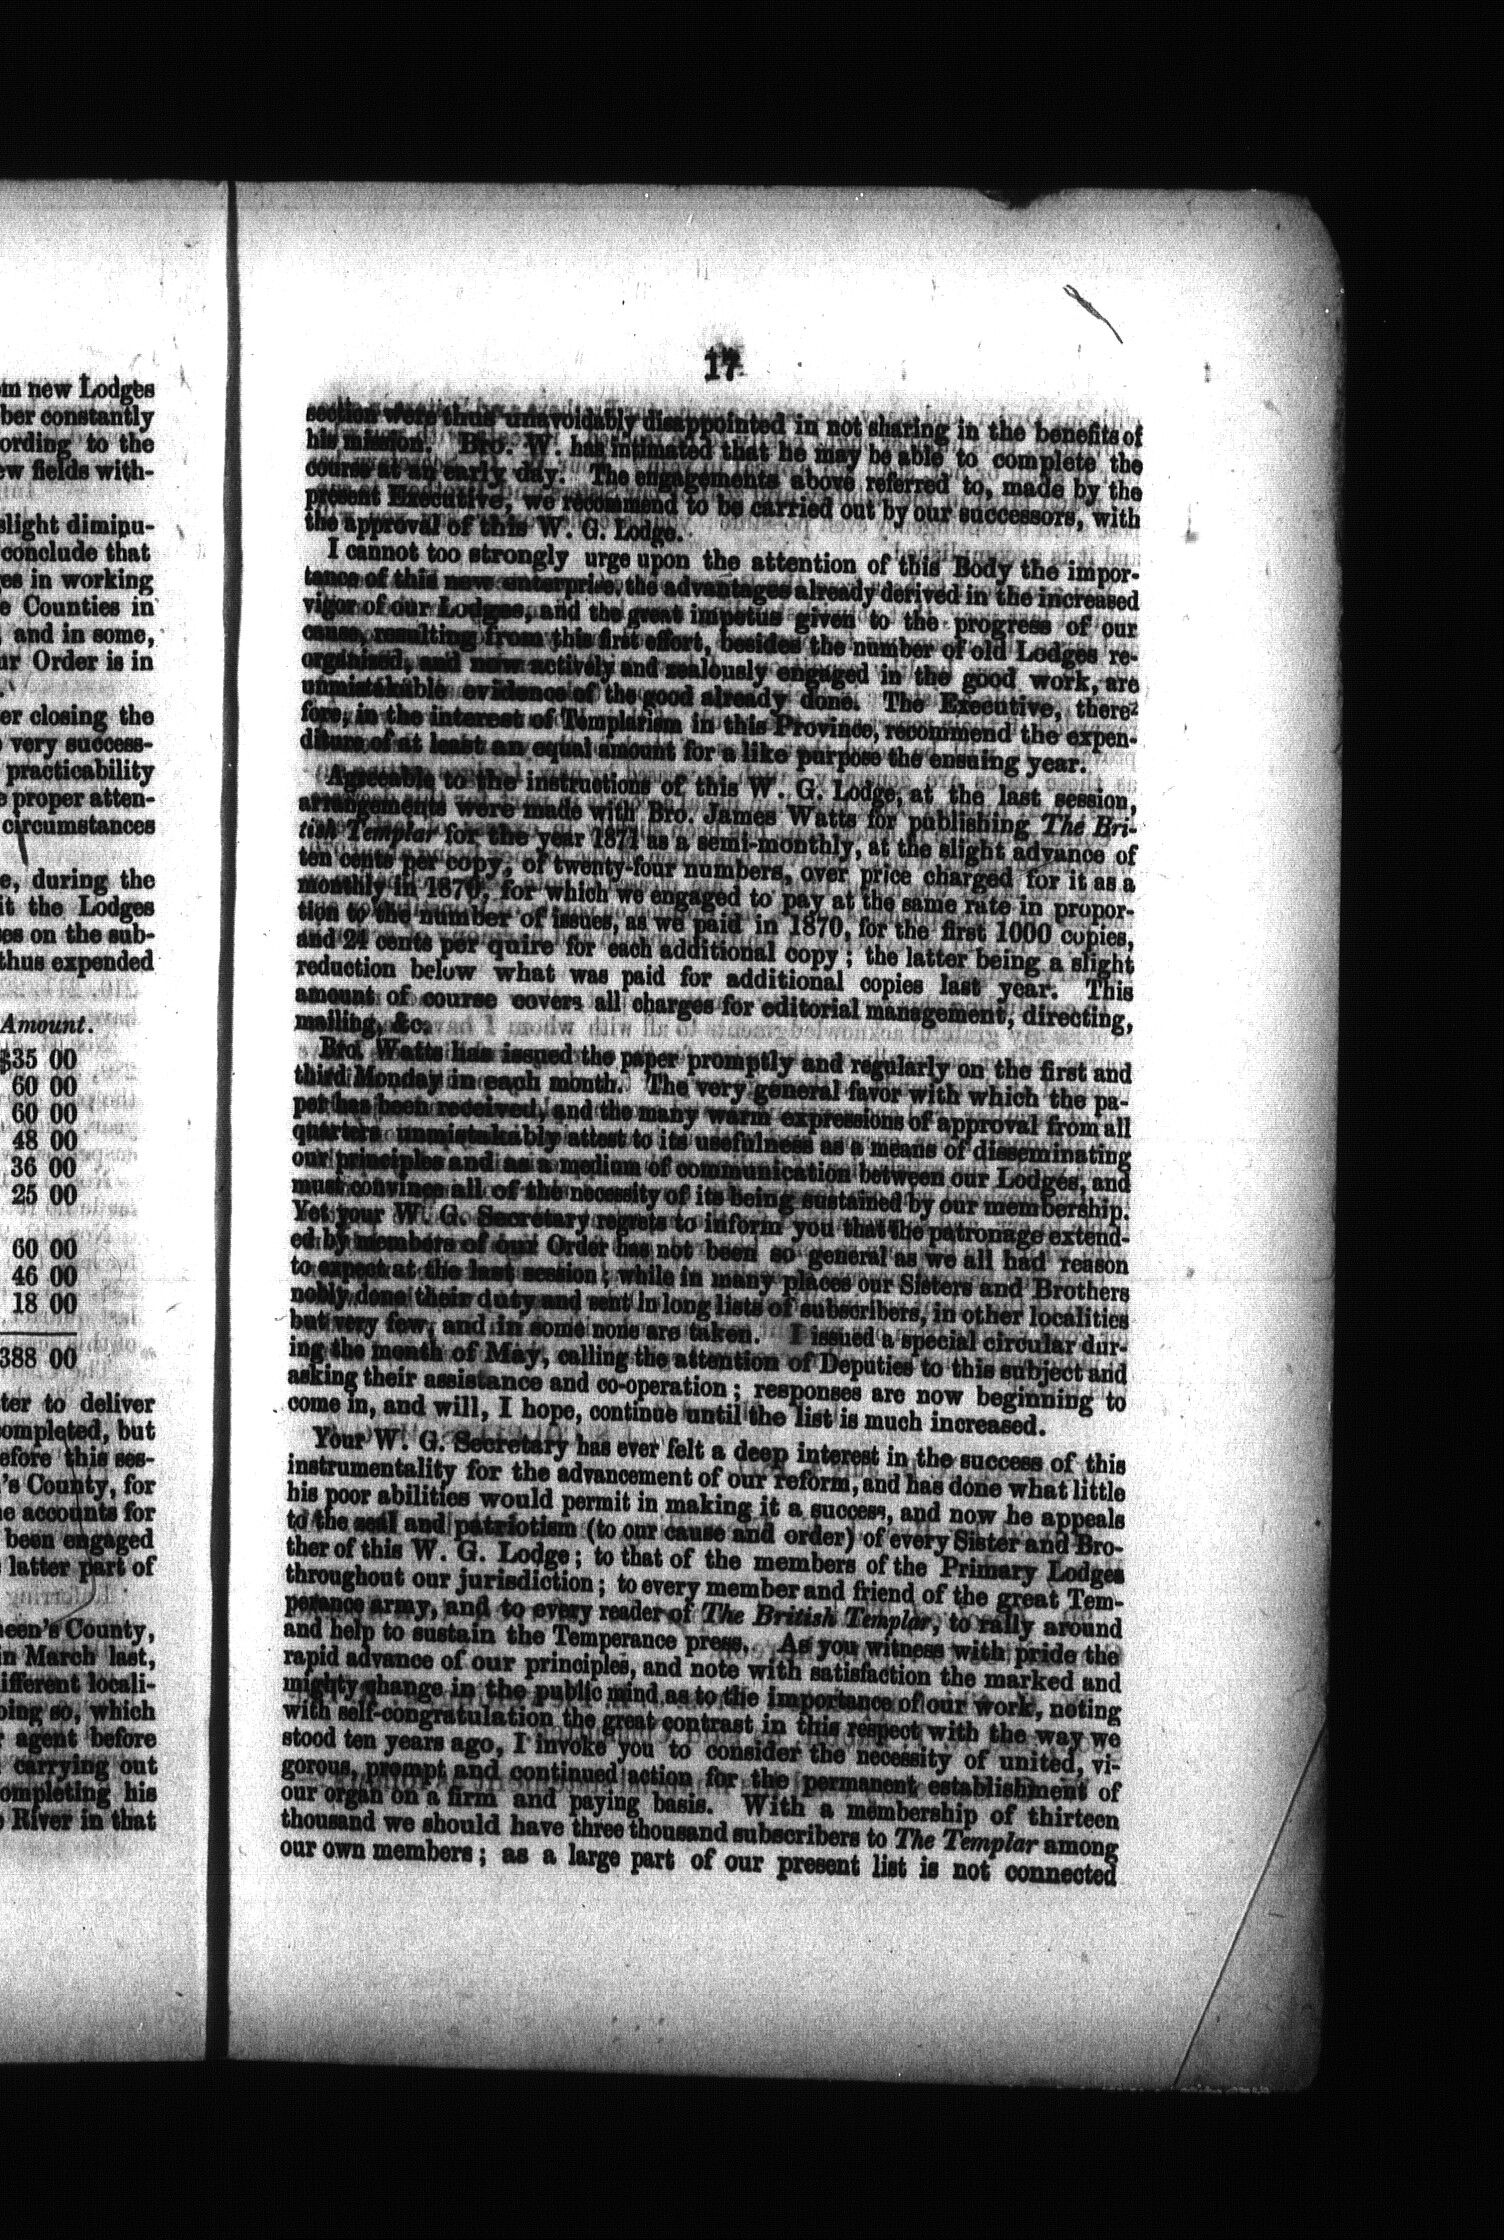 m new Lodges
ber constantly
ording to the
ew fields with-
slight diminu-
conclude that
es in working
e Counties in
and in some,
ur Order is in
er closing the
very success-
practicability
e proper atten-
circumstances
e, during the
it the Lodges
es on the sub-
thus expended
Amount.
$35 00
60 00
60 00
48 00
36 00
25 00
60 00
46 00
18 00
388 00
ter to deliver
ompleted, but
efore this ses-
's County, for
e accounts for
been engaged
latter part of
een's County,
n March last,
ifferent locali-
oing so, which
agent before
carrying out
ompleting his
River in that
17
section were thus unavoidably disappointed in not sharing in the benefits of
his mission. Bro. W. has intimated that he may be able to complete the
course at an early day. The engagements above referred to, made by the
present Executive, we recommend to be carried out by our successors, with
the approval of this W. G. Lodge.
I cannot too strongly urge upon the attention of this Body the impor-
tance of this new enterprise, the advantages already derived in the increased
vigor of our Lodges, and the great impetus given to the progress of our
cause, resulting from this first effort, besides the number of old Lodges re-
organized, and now actively and zealously engaged in the good work, are
unmistakable evidence of the good already done. The Executive, there-
fore, in the interest of Templarism in this Province, recommend the expen-
diture of at least an equal amount for a like purpose the ensuing year.
Agreeable to the instructions of this W. G. Lodge, at the last session,
arrangements were made with Bro. James Watts for publishing The Bri-
tish Templar for the year 1871 as a semi-monthly, at the slight advance of
ten cents per copy, of twenty-four numbers, over price charged for it as a
monthly in 1870, for which we engaged to pay at the same rate in propor-
tion to the number of issues, as we paid in 1870, for the first 1000 copies,
and 24 cents per quire for each additional copy; the latter being a slight
reduction below what was paid for additional copies last year. This
amount of course covers all charges for editorial management, directing,
mailing, &c.
Bro. Watts has issued the paper promptly and regularly on the first and
third Monday in each month. The very general favor with which the pa-
per has been received, and the many warm expressions of approval from all
quarters unmistakably attest to its usefulness as a means of disseminating
our principles and as a medium of communication between our Lodges, and
must convince all of the necessity of its being sustained by our membership.
Yet your W. G. Secretary regrets to inform you that the patronage extend-
ed by members of our Order has not been so general as we all had reason
to expect at the last session; while in many places our Sisters and Brothers
nobly done their duty and sent in long lists of subscribers, in other localities
but very few, and in some none are taken. I issued a special circular dur-
ing the month of May, calling the attention of Deputies to this subject and
asking their assistance and co-operation; responses are now beginning to
come in, and will, I hope, continue until the list is much increased.
Your W. G. Secretary has ever felt a deep interest in the success of this
instrumentality for the advancement of our reform, and has done what little
his poor abilities would permit in making it a success, and now he appeals
to the zeal and patriotism (to our cause and order) of every Sister and Bro-
ther of this W. G. Lodge; to that of the members of the Primary Lodges
throughout our jurisdiction; to every member and friend of the great Tem-
perance army, and to every reader of The British Templar, to rally around
and help to sustain the Temperance press. As you witness with pride the
rapid advance of our principles, and note with satisfaction the marked and
mighty change in the public mind as to the importance of our work, noting
with self-congratulation the great contrast in this respect with the way we
stood ten years ago, I invoke you to consider the necessity of united, vi-
gorous, prompt and continued action for the permanent establishment of
our organ on a firm and paying basis. With a membership of thirteen
thousand we should have three thousand subscribers to The Templar among
our own members; as a large part of our present list is not connected